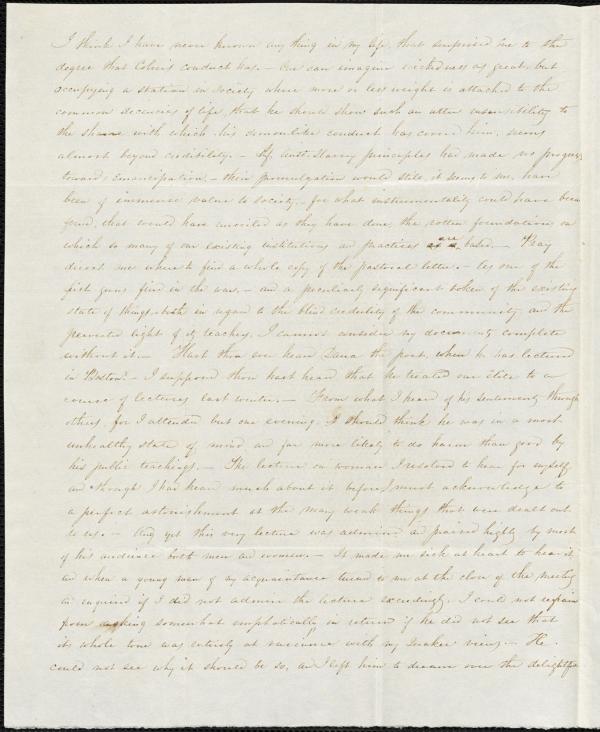 I think I have never known any thing in my life, that surprised me to the
degree that Colver's conduct has. - One can imagine wickedness as great, but
occupying a station in society where more or less weight is attached to the
common decencies of life, that he should show such an utter insensibility to
the shame with which his demonlike conduct has covered him, seems
almost beyond credibility. - If Anti-Slavery principles had made no progress
towards Emancipation, - their promulgation would still, it seems to me, have
been of immense value to society, - for what instrumentality could have been
found, that would have uncovered as they have done, the rotten foundation on
which so many of our existing institutions and practices are based. - Pray
direct me where to find a whole copy of the pastoral letter. - As one of the
first guns fired in the war, - and a peculiarly significant token of the existing
state of things, both in regard to the blind credulity of the community and the
perverted light of its teachers, I cannot consider my documents complete
without it. - Hast thou ever heard Dana the poet, when he has lectured
in Boston? - I suppose thou hast heard that he treated our élite to a
course of lectures last winter. - From what I heard of his sentiments through
others, for I attended but one evening, I should think he was in a most
unhealthy state of mind, and far more likely to do harm than good by
his public teachings. - The lecture on woman I resolved to hear for myself,
and though I had heard much about it before, I must acknowledge to
a perfect astonishment at the many weak things that were dealt out
to us. - And yet this very lecture was admired and praised highly by most
of his audience both men and women. - It made me sick at heart to hear it
and when a young man of my acquaintance turned to me at the close of the meeting
and enquired if I did not admire the lecture exceedingly, I could not refrain
from asking somewhat emphatically in return if he did not see that
its whole tone was entirely at variance with my Quaker views. - He
could not see why it should be so, and I left him to dream over the delightful